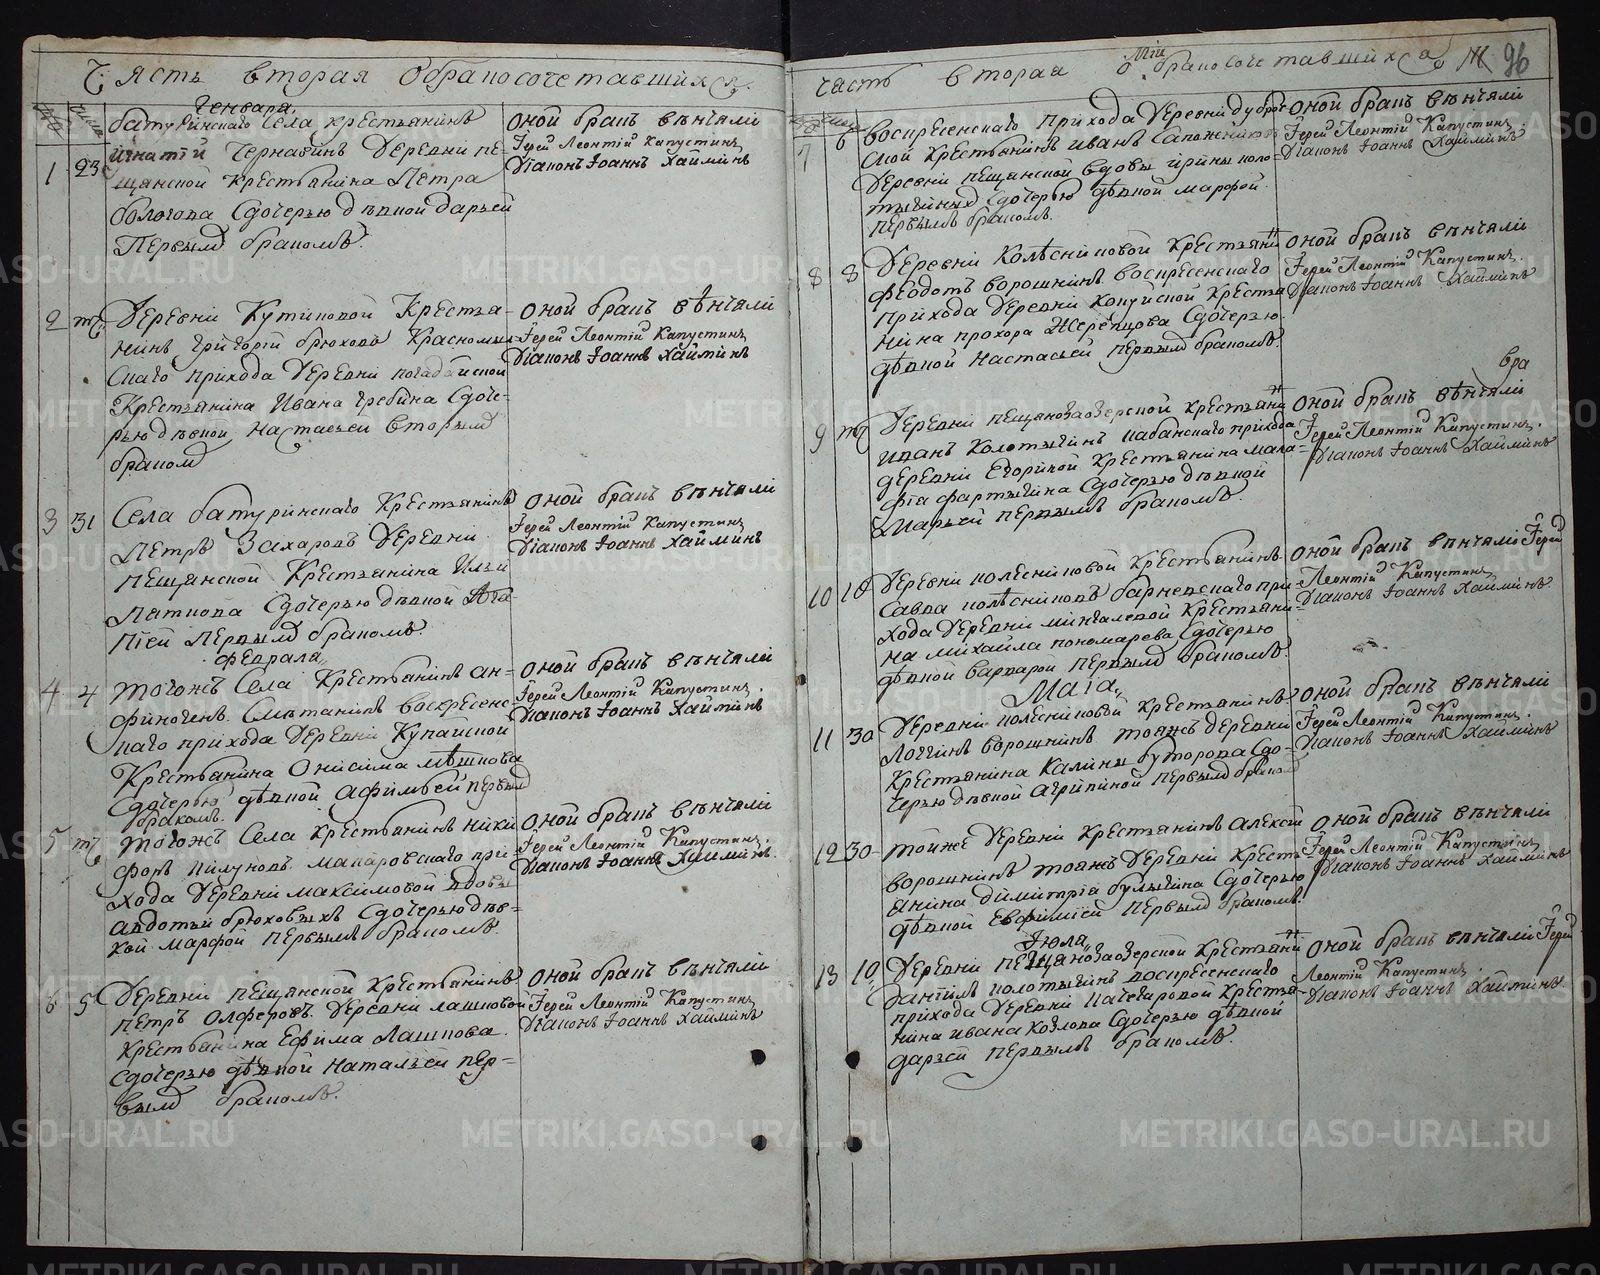 Часть вторая обракосочетавшихся
Генваря
1 23 батуринскаго села крестьянинъ
Игнатий Чернавинъ деревни пе-
щанской крестьянина Петра
Бологова сдочерью девкой дарьей
Первымъ бракомъ.
оной бракъ венчали
Іерей Леонтій Капустинъ
Діаконъ Іоаннъ Хайминъ
2 Деревни Кутиковой Крестья-
нинъ григорій брюховъ Красномыл-
скаго прихода деревни
Крестьянина Ивана гребина Сдоче-
рью девкой настасьей вторымъ
бракомъ
оной бракъ вѣнчали
Іерей Леонтій Капустинъ
Діаконъ Іоаннъ Хайминъ
3 31 Села батуринскаго Крестьянинъ
Петръ Захаровъ деревни
пещанской крестьянина Ильи
Пяткова Сдочерью девкой Ага-
піей Первымъ бракомъ.
оной бракъ венчали
Іерей Леонтій Капустинъ
Діаконъ Іоаннъ Хайминъ
февраля
4 4 тогожъ Села Крестьянинъ ан-
финогенъ Сметанинъ воскресенс-
каго прихода деревни Купайской
Крестьянина Онисима мѣшкова
Сдочерью дѣвкой афимьей первымъ
бракомъ.
оной бракъ венчали
Іерей Леонтій Капустинъ
Діаконъ Іоаннъ Хайминъ
5 тогожъ Села крестьянинъ ники
форъ пилуковъ макаровскаго при-
хода деревни максимовой вдовы
авдотьи брюховыхъ Сдочерью дев-
кой марфой первымъ бракомъ.
оной бракъ венчали
Іерей Леонтій Капустинъ
Діаконъ Іоаннъ Хайминъ
6 5 деревни пещанской крестьянинъ
петръ Олферовъ деревни лашковой
крестьянина Ефима Лашкова
Сдочерью дѣвкой Натальей пер-
вымъ бракомъ.
оной бракъ венчали
Іерей Леонтій Капустинъ
Діаконъ Іоаннъ Хайминъ
часть вторая о бракосочетавшихся 96
7 6 воскресенскаго прихода деревни дубров-
ской крестьянинъ иванъ Сапожников
деревни пещанской вдовы ирины коло-
тыгиныхъ Сдочерью дѣвкой марфой
первымъ бракомъ.
оной бракъ венчали
Іерей Леонтій Капустинъ
Діаконъ Іоаннъ Хайминъ
8 8 деревни Колѣсниковой крестьянинъ
феодотъ ворошнинъ воскресенскаго
прихода деревни копуйской крестья
нина прохора Жеребцова Сдочерью
дѣвкой настасьей первымъ бракомъ
оной бракъ венчали
Іерей Леонтій Капустинъ
Діаконъ Іоаннъ Хайминъ
9 деревни пещанозаозерской крестьянин
иванъ Колотыгинъ кабанскаго прихода
деревни Егоркиной крестьянина мака-
фртыгина Сдочерью девкой
Марьей первымъ бракомъ
бра
оной бракъ вѣнчали
Іерей Леонтій Капустинъ
Діаконъ Іоаннъ Хайминъ
10 10 деревни колесниковой крестьянинъ
Савва колѣсниковъ барневскаго при-
хода деревни мингалевой крестьяни-
на михайла пономарева Сдочерью
дѣвкой варварой первымъ бракомъ.
оной бракъ венчали Іерей
Леонтій Капустинъ
Діаконъ Іоаннъ Хайминъ
Маіа
11 30 деревни колесниковой крестьянинъ
логгинъ ворошнинъ тояжъ деревни
крестьянина Калины буторова Сдо-
черью девкой агрипиной первымъ браком
оной бракъ венчали
Іерей Леонтій Капустинъ
Діаконъ Іоаннъ Хайминъ
12 30 тойже деревни крестьянинъ алексій
ворошнинъ тояжъ деревни кресть-
янина димитрія булыгина Сдочерью
дѣвкой Евфиміей первымъ бракомъ.
оной бракъ венчали
Іерей Леонтій Капустинъ
Діаконъ Іоаннъ Хайминъ
Іюля
13 10 деревни пещанозаозерской крестьянин
даніилъ колотыгинъ воскресенскаго
прихода деревни крестья-
нина ивана козлова Сдочерью дѣвкой
дарьей первымъ бракомъ.
оной бракъ венчали Іерей
Леонтій Капустинъ
Діаконъ Іоаннъ Хайминъ
METRIKI.GASO-URAL.RU